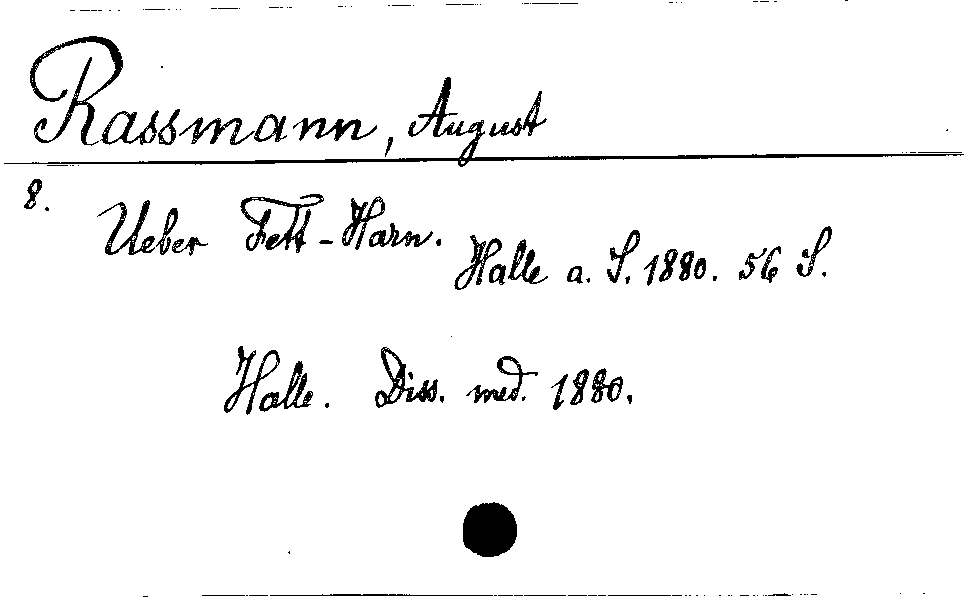 Rassmann, August
8.
Ueber Fett-Harn.
Halle a. S. 1880. 56 S.
Halle. Diss. med. 1880.